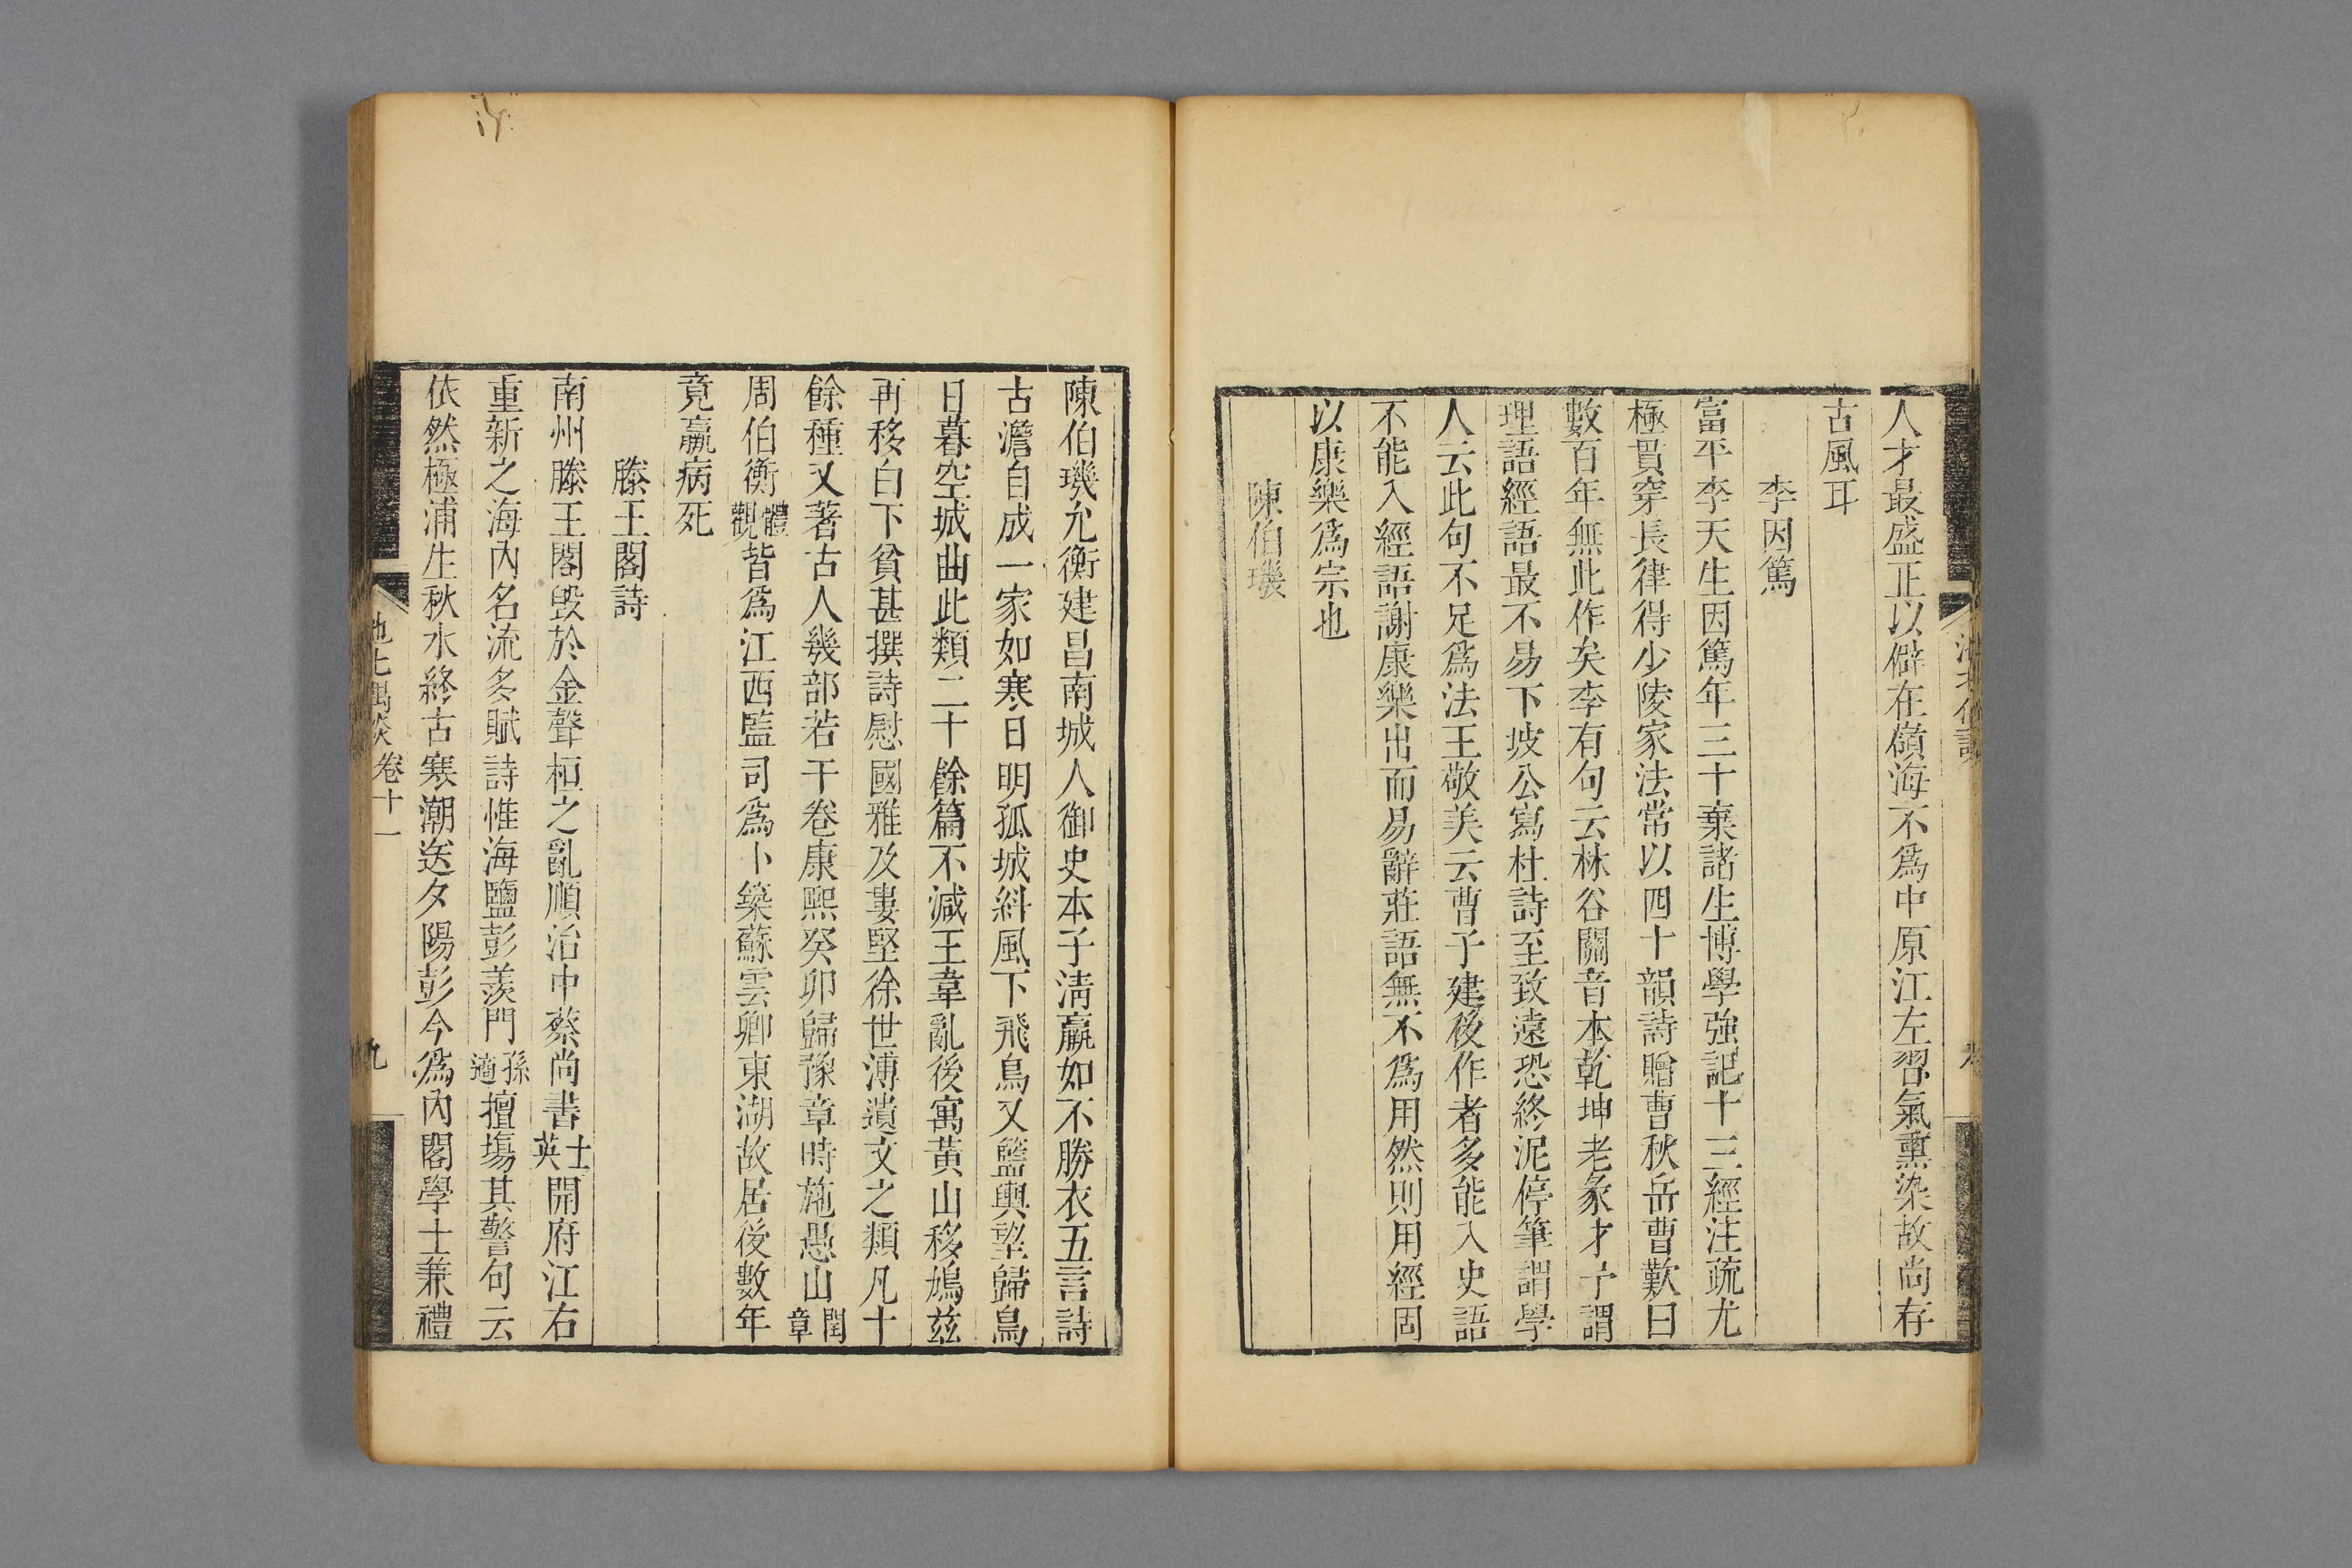 人才最盛正以僻在嶺海不爲中原江左習氣熏染故尚存
古風耳
李因篤
富平李天生因篤年三十棄諸生博學強記十三經注疏尤
極貫穿長律得少陵家法常以四十韻詩贈曹秋岳曹歎曰
數百年無此作矣李有句云林谷關音本乾坤老彖才予謂
理語經語最不易下坡公寫杜詩至致遠恐終泥停筆謂學
人云此句不足爲法王敬美云曹子建後作者多能入史語
不能入經語謝康樂出而易辭莊語無不爲用然則用經固
以康樂爲宗也
陳伯璣
陳伯璣允衡建昌南城人御史本子淸羸如不勝衣五言詩
古澹自成一家如寒日明孤城斜風下飛鳥又籃輿望歸鳥
日暮空城曲此類二十餘篇不減王韋亂後寓黃山移鳩茲
再移白下貧甚撰詩慰國雅及婁堅徐世溥遺文之類凡十
餘種又著古人幾部若干卷康熙癸卯歸豫章時施愚山閏章
周伯衡體觀皆爲江西監司爲卜築蘇雲卿東湖故居後數年
竟羸病死
滕王閣詩
南州滕王閣毀於金聲桓之亂順治中蔡尚書士英開府江右
重新之海內名流多賦詩惟海鹽彭羨門孫遹擅塲其警句云
依然極浦生秋水終古寒潮送夕陽彭今爲內閣學士兼禮
卷十一
九